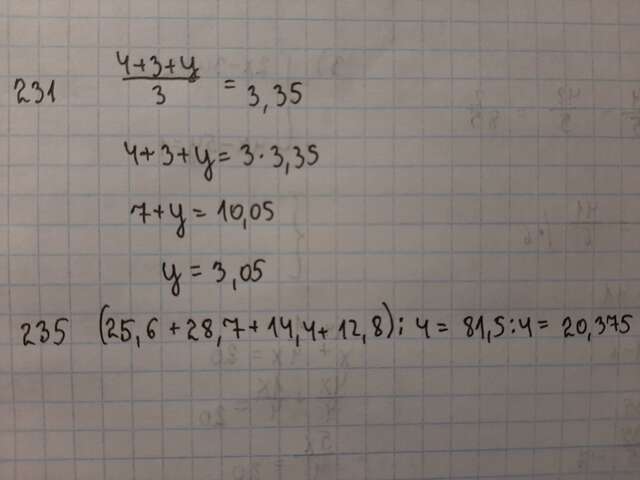 231 (4+3+y)/3 = 3,35
4+3+y = 3·3,35
7+y = 10,05
y = 3,05
235 (25,6+28,7+14,4+12,8):4 = 81,5:4 = 20,375